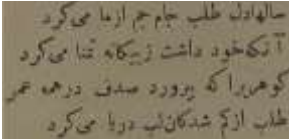 سالهادل طلب جام جم ازما می‌کرد
آنکه خود داشت زبیگانه تمنا می‌کرد
گوهریرا که بپرورد صدف در همه عمر
طلب از گم شدگان لب دریا می‌کرد